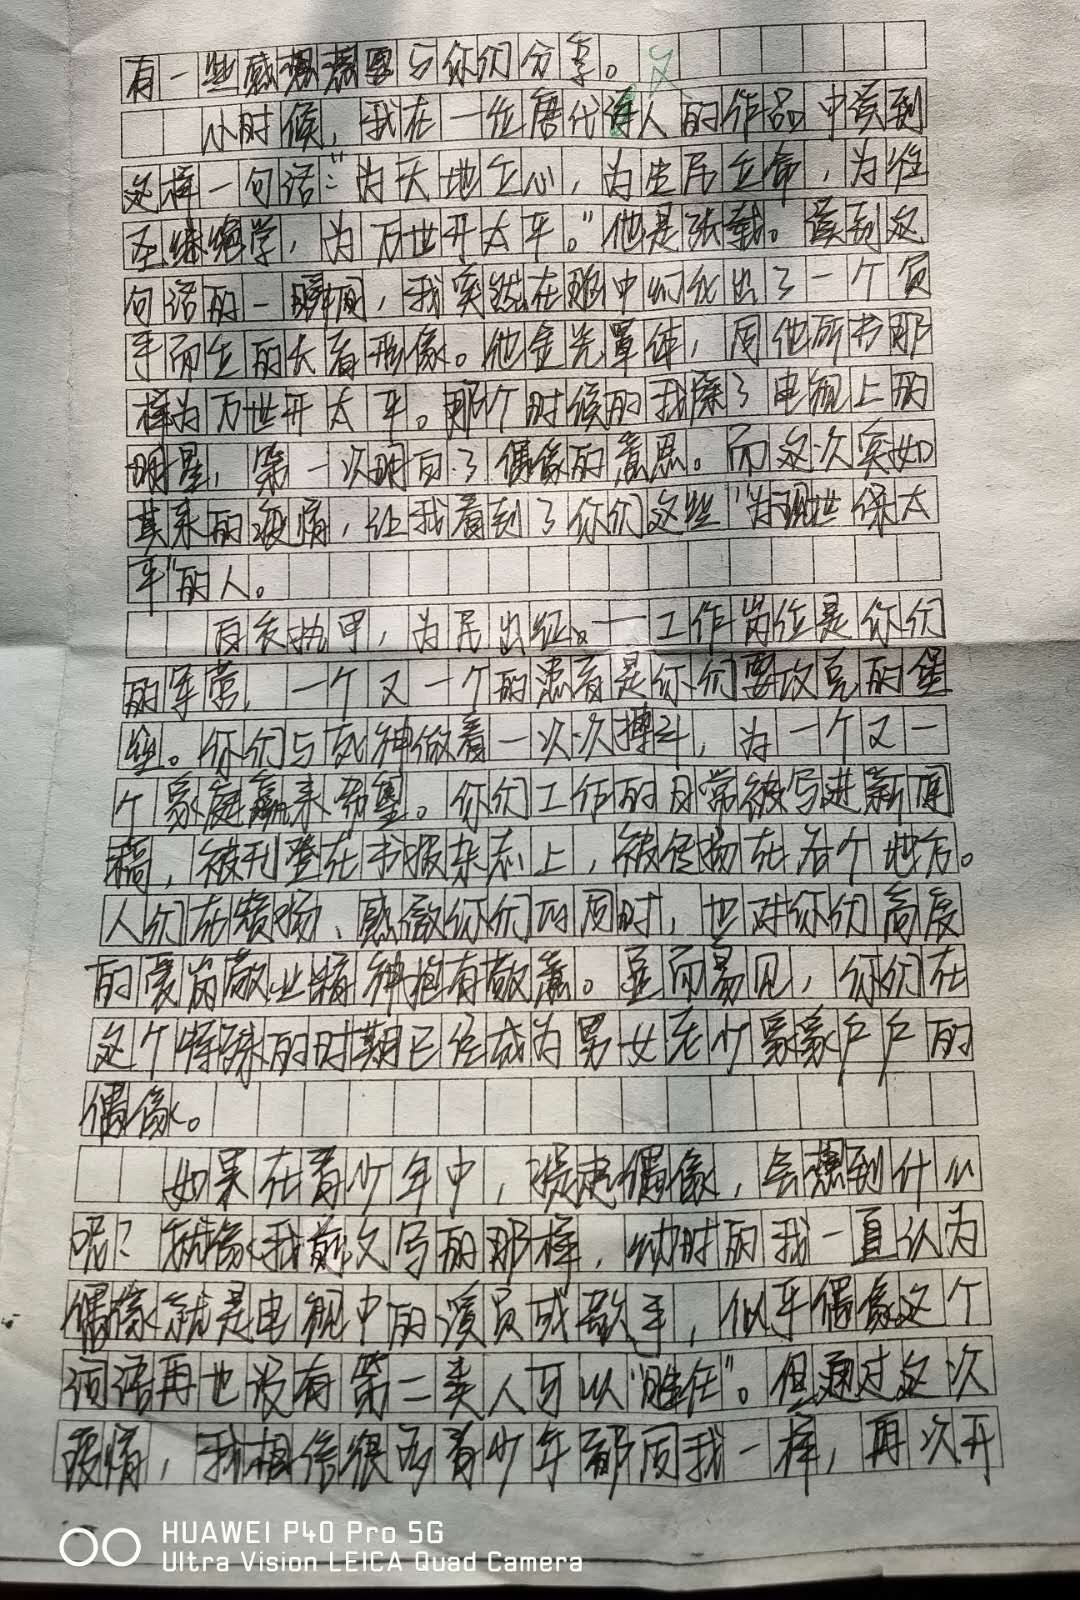 有一些感想想要与你们分享。
小时候，我在一位唐代诗人的作品中读到
这样一句话："为天地立心，为生民立命，为往
圣继绝学，为万世开太平。"他是张载。读到这
句话的一瞬间，我突然在脑中幻化出了一个负
手而立的长者形像。他金光罩体，同他所书那
样为万世开太平。那个时候的我除了电视上的
明星，第一次明白了偶像的意思。而这次突如
其来的疫情，让我看到了你们这些"为现世保太
平"的人。
白衣执甲，为民出征。——工作岗位是你们
的军营，一个又一个的患者是你们要攻克的堡
垒。你们与死神做着一次次搏斗，为一个又一
个家庭赢来希望。你们工作的日常被写进新闻
稿，被刊登在书报杂志上，被传扬在各个地方。
人们在赞扬、感激你们的同时，也对你们高度
的爱岗敬业精神抱有敬意。显而易见，你们在
这个特殊的时期已经成为男女老少家家户户的
偶像。
如果在青少年中，提起偶像，会想到什么
呢？就像我前文写的那样，幼时的我一直认为
偶像就是电视中的演员或歌手，似乎偶像这个
词语再也没有第二类人可以"胜任"。但通过这次
疫情，我相信很多青少年都同我一样，再次开
HUAWEI P40 Pro 5G
Ultra Vision LEICA Quad Camera